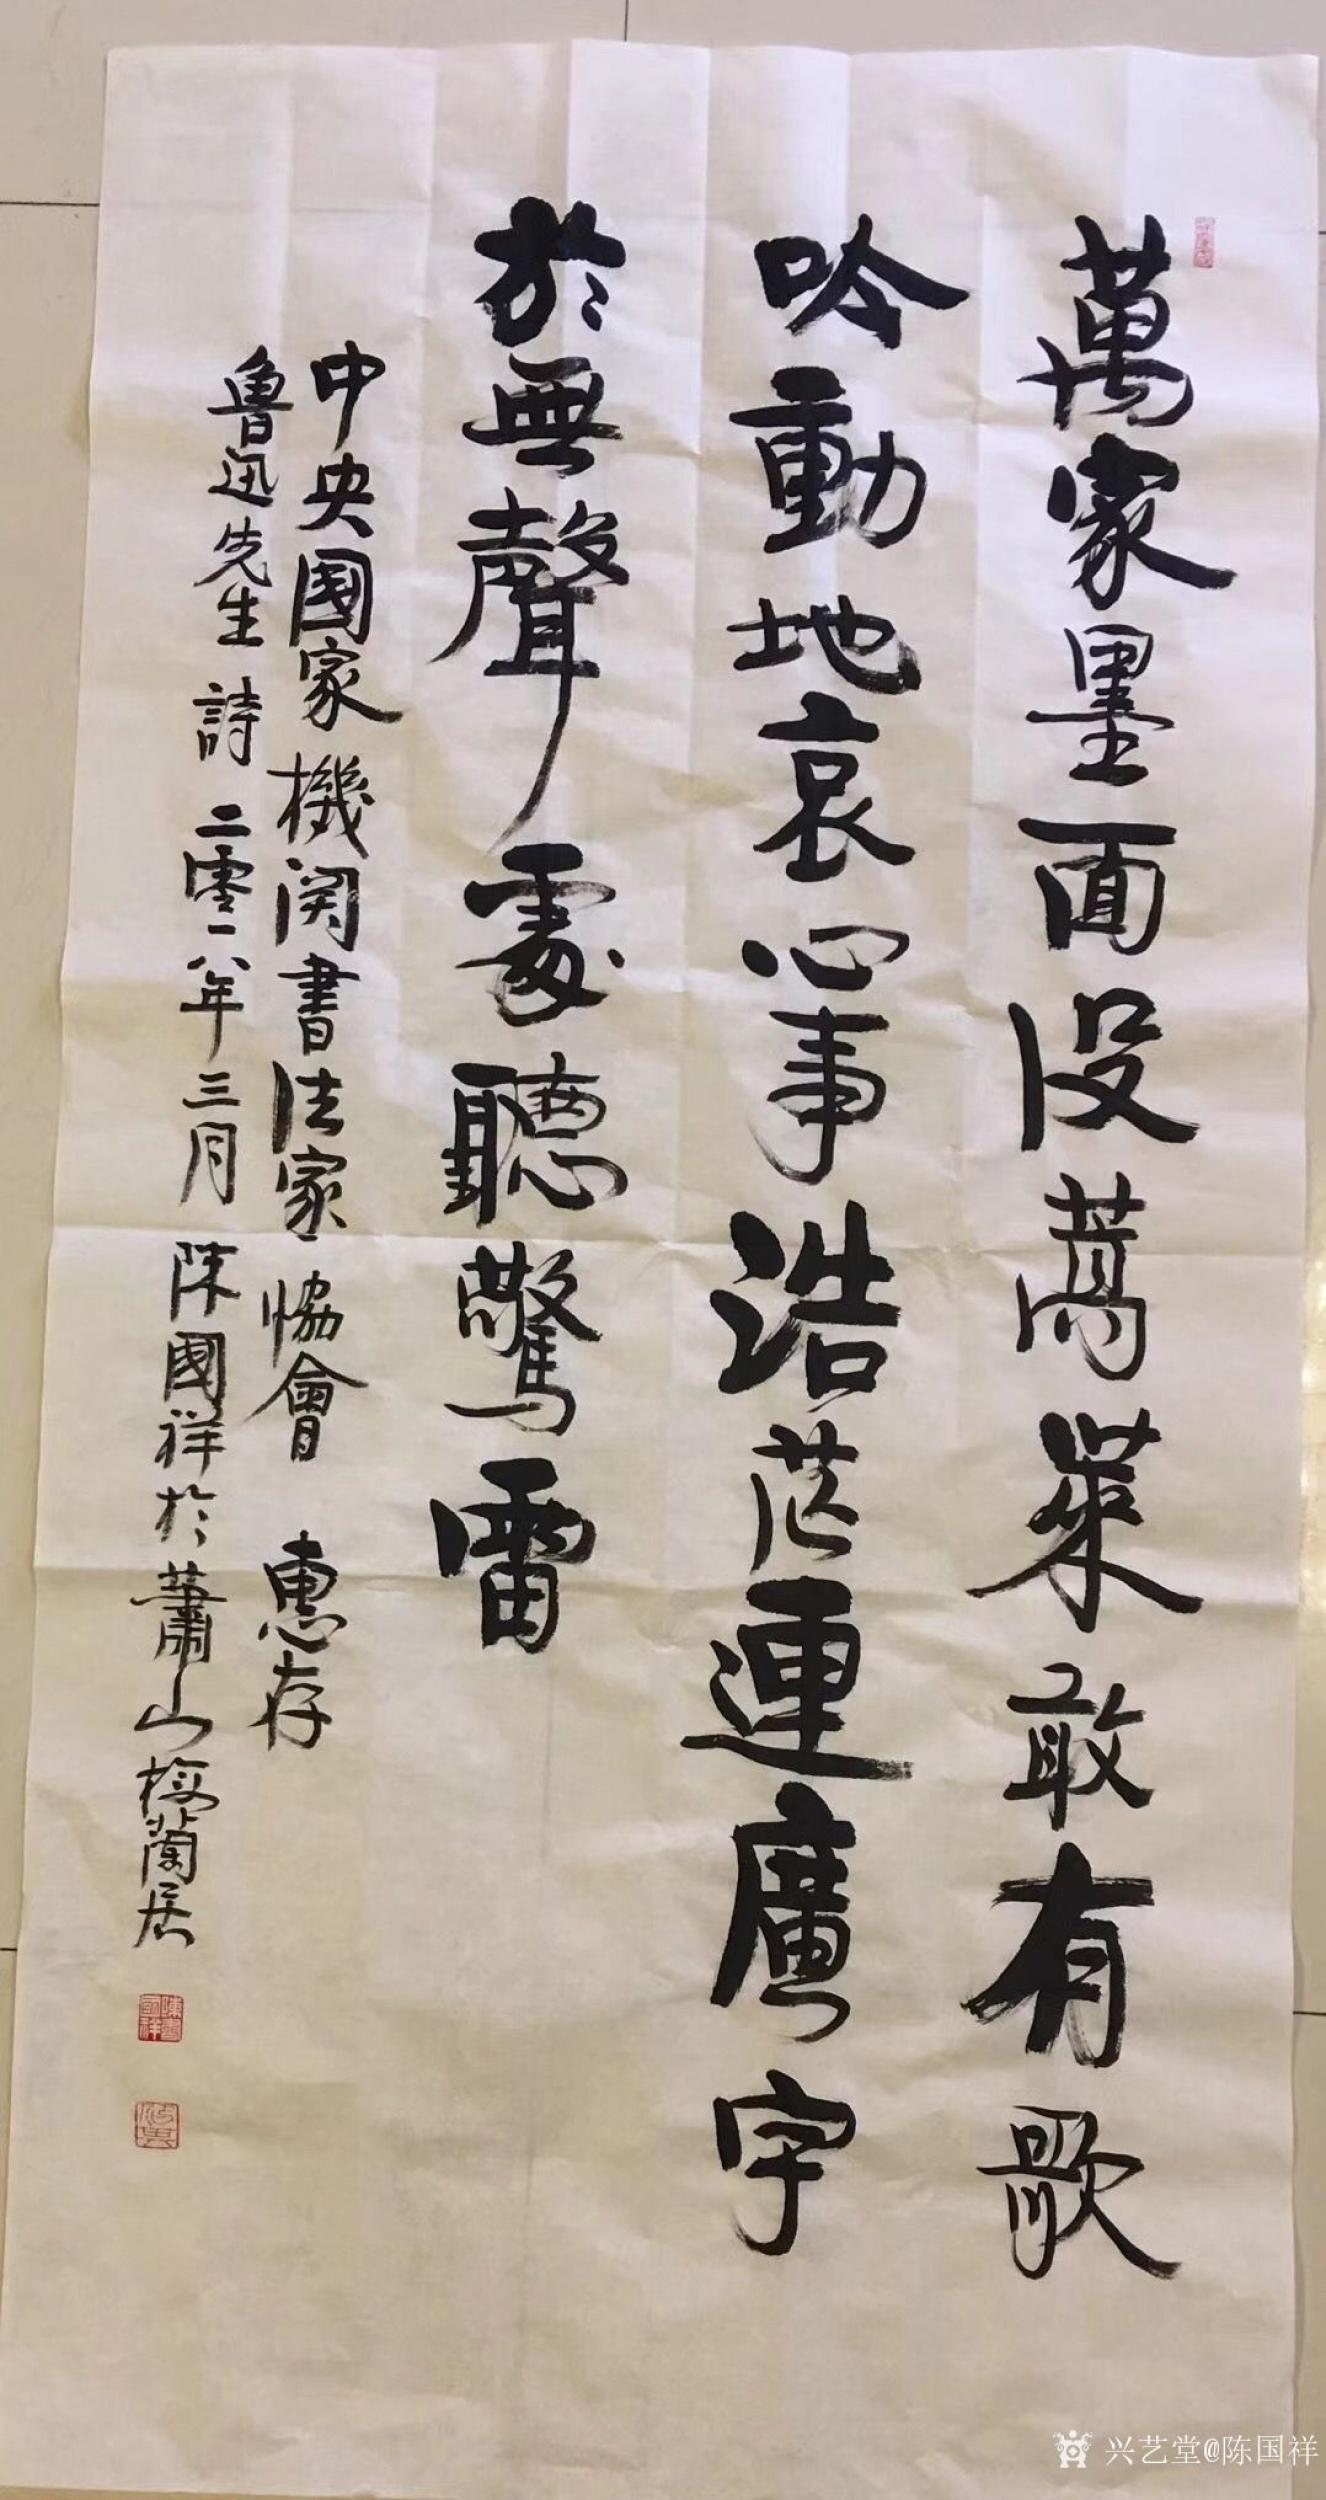 萬家墨面没蒿萊敢有歌
吟動地哀心事浩茫連廣宇
於無聲處聽驚雷
中央國家機関書法家協會 惠存
魯迅先生詩 二零一八年三月 陳國祥於蕭山梅蘭居
陳國祥
兴艺堂@陈国祥